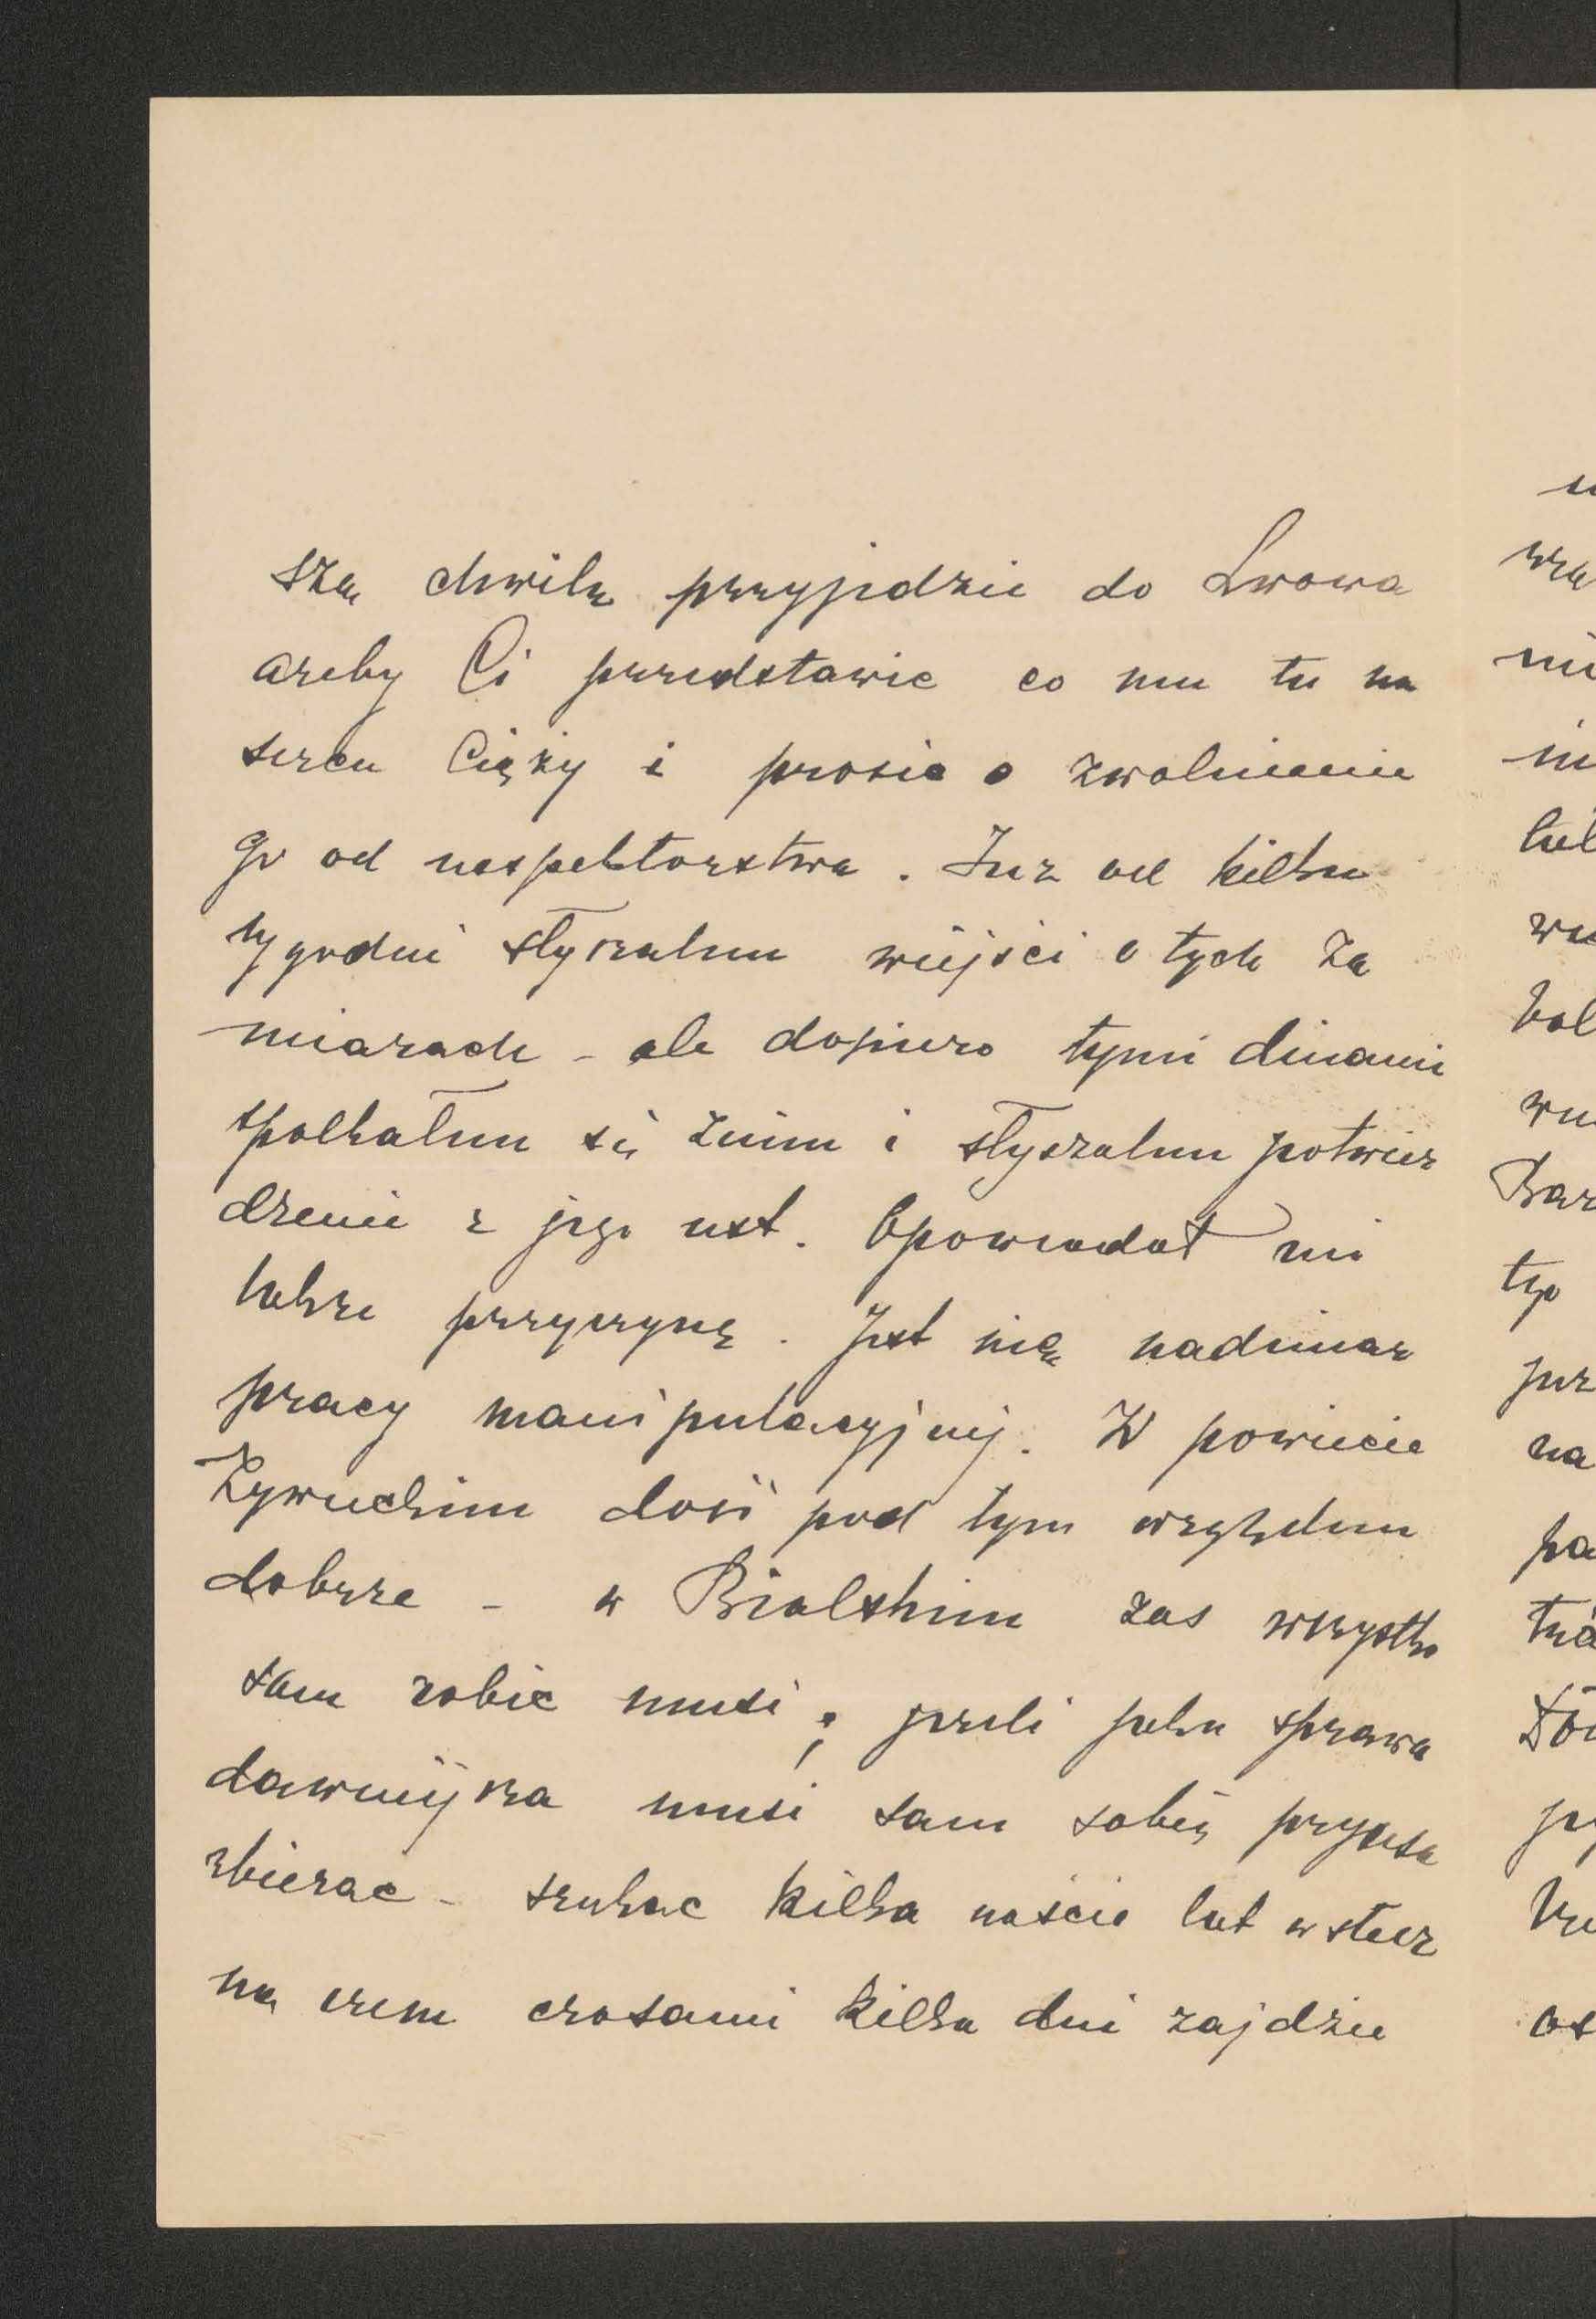 szą chwilę przyjedzie do Lwowa
ażeby Ci przedstawic co mu tu na
sercu Cięży i prosic o zwolnienie
go od inspektorstwa. Już od kilku
tygodni słyszałem wiejści o tych za
miarach - ale dopiero tymi dniami
spotkałem się znim i słyszałem potwier
dzenie z jego ust. Opowiadał mi
także przyczynę. Jest nią nadmiar
pracy manipulacyjnej. W powiecie
Żywieckim dość pod tym względem
dobrze - w Bialskim zas wszystko
sam robic musi; jezeli jaka sprawa
dawniejsza musi sam sobie
zbierac - szukac kilka naście lat wstecz
na czem czasami kilka dni zajdzie